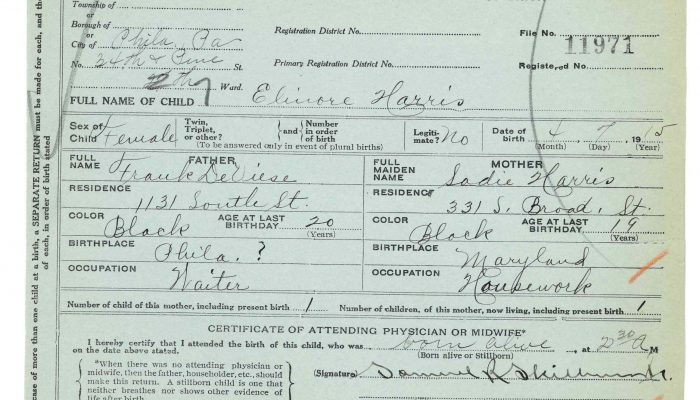 Township of
or
Borough of
or
City of Phila, Pa
Registration District No.
File No. 11971
No. 34th & Pine St.
Primary Registration District No.
Registered No.
Ward.
FULL NAME OF CHILD Elinore Harris
Sex of Child Female
Twin, Triplet, or other?
and
Number in order of birth
(To be answered only in event of plural births)
Legitimate? No
Date of birth 4 7 1915
(Month) (Day) (Year)
FATHER
FULL NAME Frank DeViese
MOTHER
FULL MAIDEN NAME Sadie Harris
RESIDENCE 1131 South St.
RESIDENCE 331 S. Broad. St.
COLOR Black
AGE AT LAST BIRTHDAY 20
(Years)
COLOR Black
AGE AT LAST BIRTHDAY 19
(Years)
BIRTHPLACE Phila. ?
BIRTHPLACE Maryland
OCCUPATION Waiter
OCCUPATION Housework
Number of child of this mother, including present birth 1
Number of children, of this mother, now living, including present birth 1
CERTIFICATE OF ATTENDING PHYSICIAN OR MIDWIFE*
I hereby certify that I attended the birth of this child, who was born alive, at 2 30 A M
on the date above stated.
(Born alive or Stillborn)
*When there was no attending physician or
midwife, then the father, householder, etc., should
make this return. A stillborn child is one that
neither breathes nor shows other evidence of
life after birth.
(Signature) Samuel R
case of more than one child at a birth, a SEPARATE RETURN must be made for each, and the
each, in order of birth stated